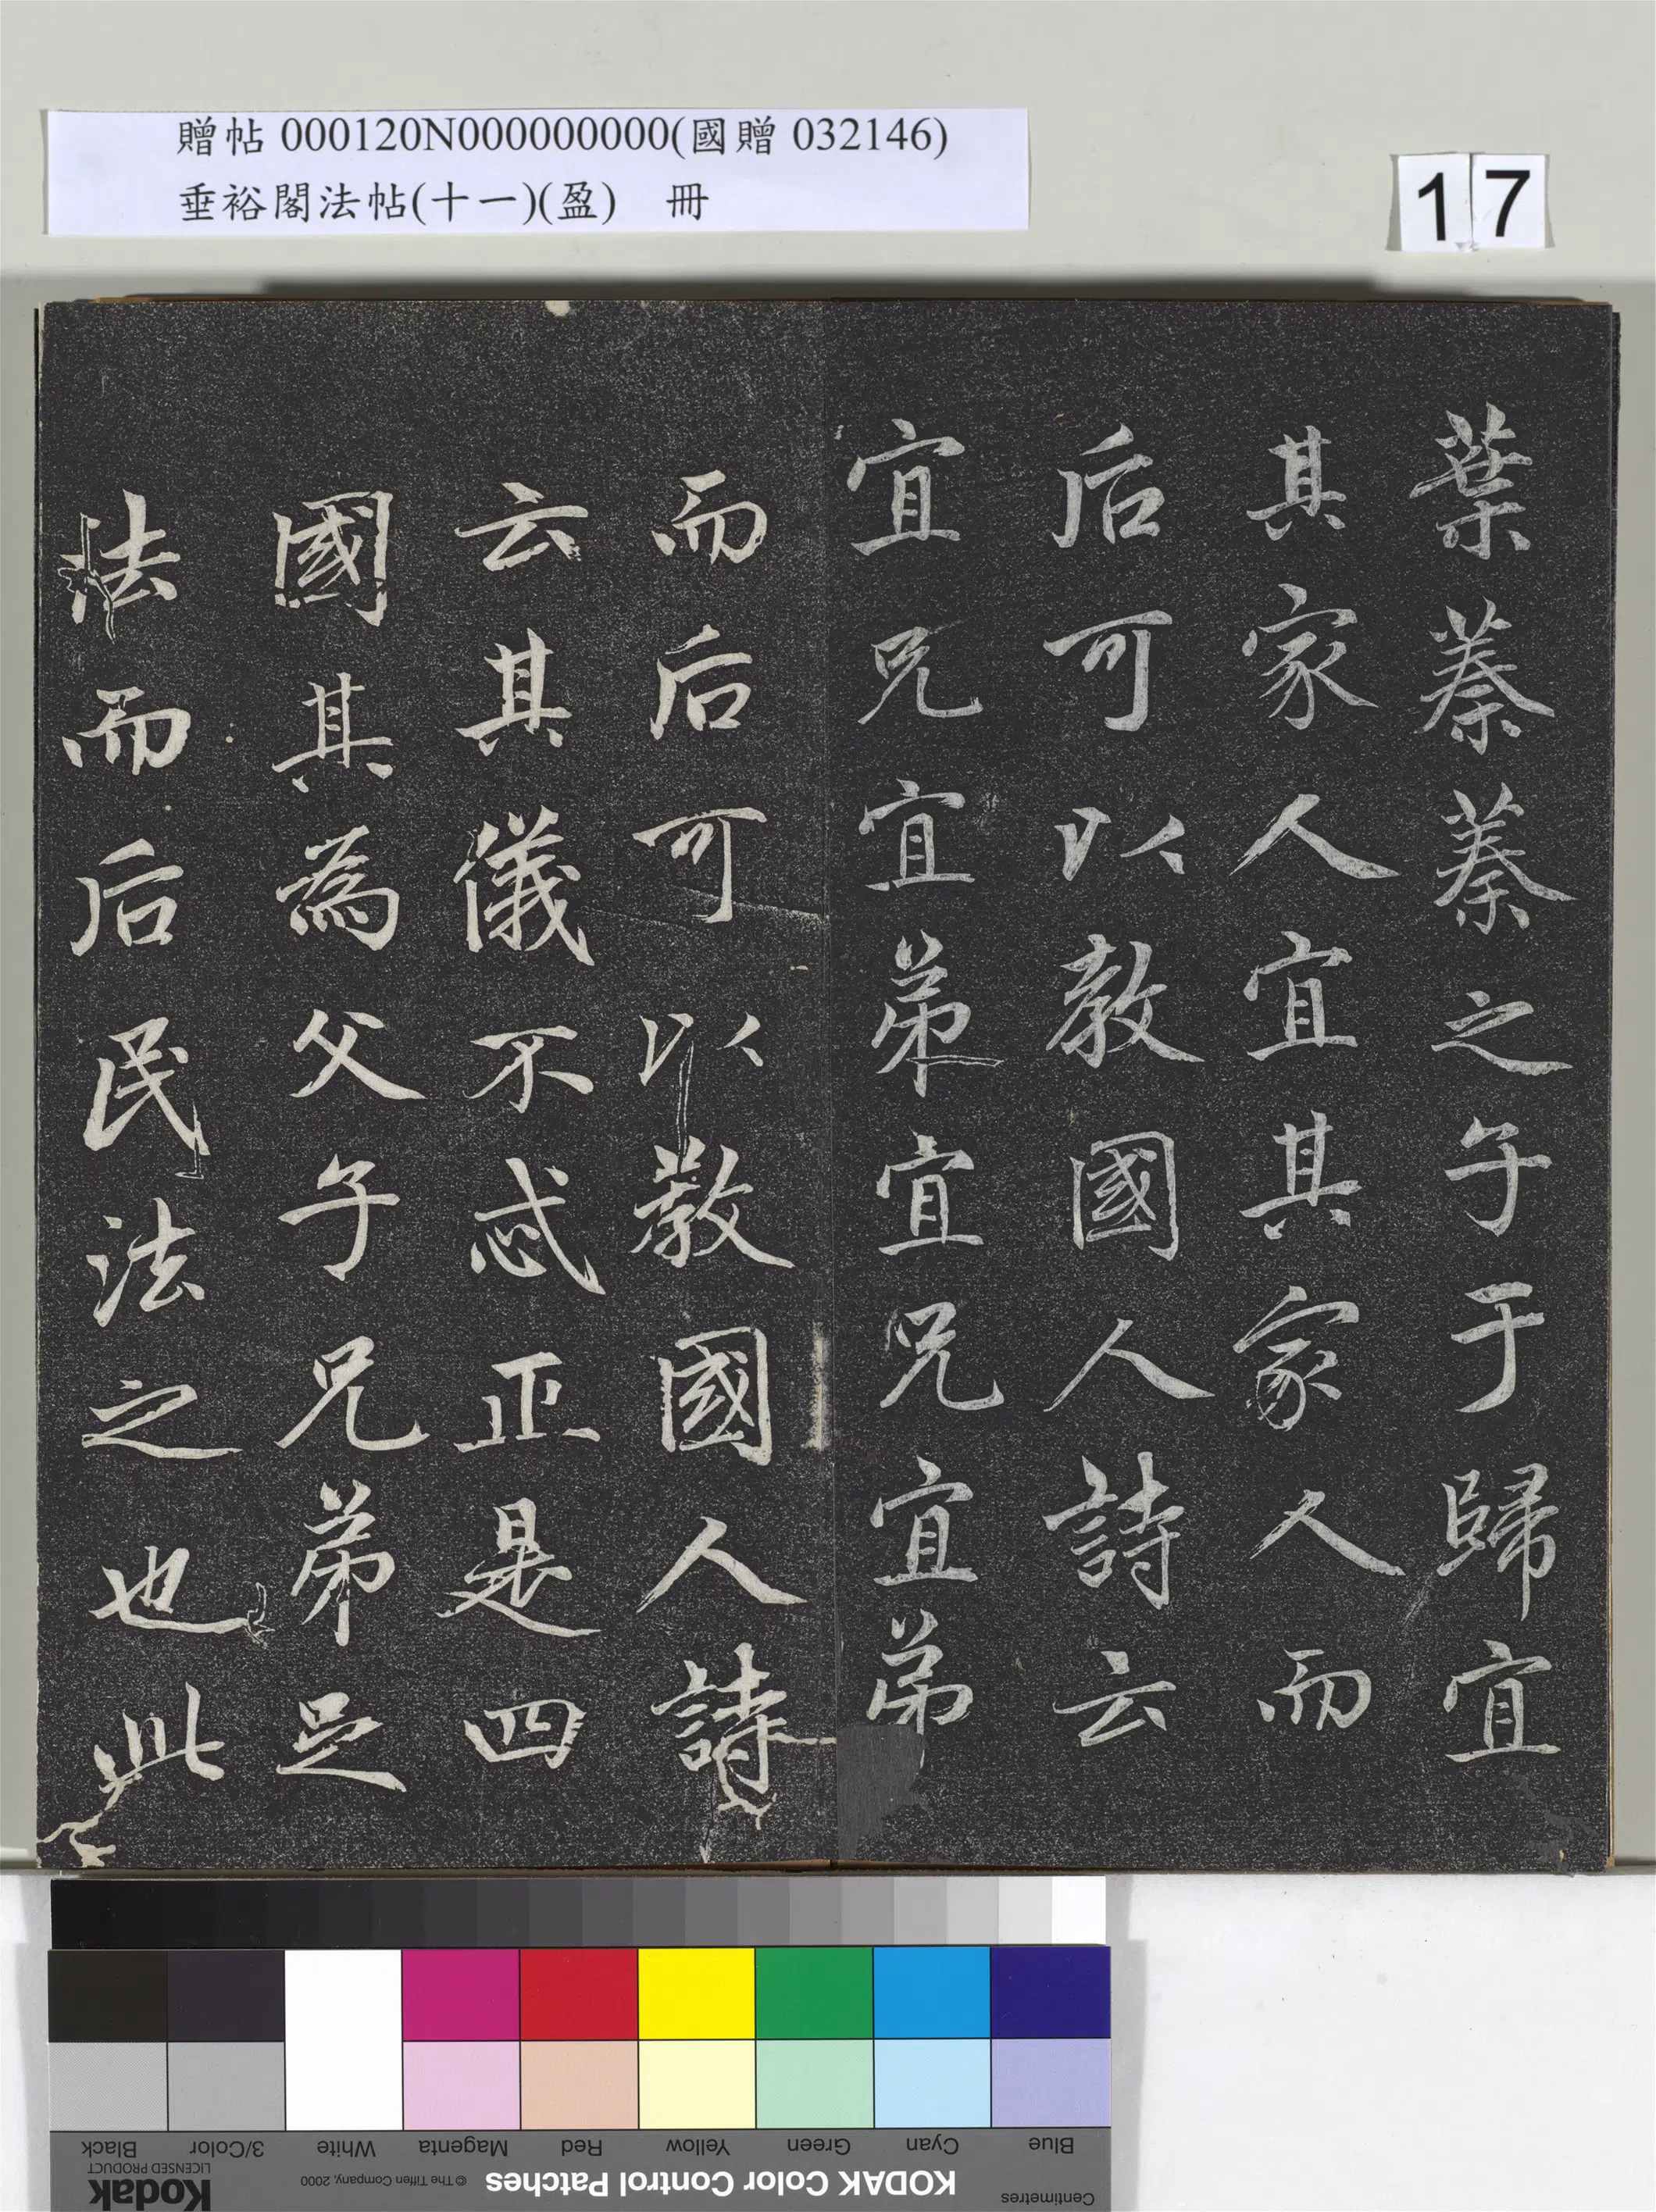 贈帖 000120N000000000(國贈 032146)
垂裕閣法帖(十一)(盈) 冊
17
葉蓁蓁之子于歸宜
其家人宜其家人而
后可以教國人詩云
宜兄宜弟宜兄宜弟
而后可以教國人詩
云其儀不忒正是四
國其為父子兄弟足
法而后民法之也此
Black 3/Color White Magenta Red Yellow Green Cyan Blue
Kodak
LICENSED PRODUCT
© The Tiffen Company, 2000
KODAK Color Control Patches
Centimetres